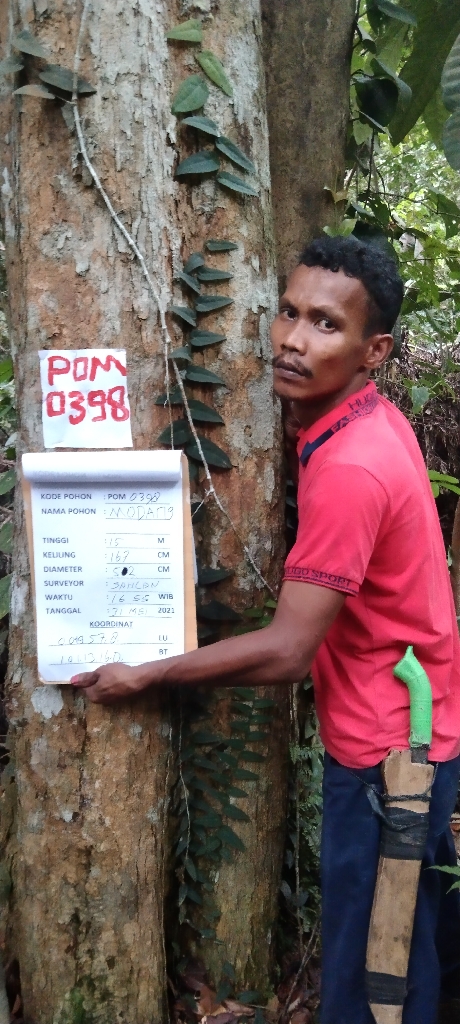 POM
0398
KODE POHON : POM 0398
NAMA POHON : MODANG
TINGGI : 15 M
KELILING : 167 CM
DIAMETER : CM
SURVEYOR :
WAKTU : 16 55 WIB
TANGGAL : 31 MEI 2021
KOORDINAT
LU
BT
HUGO SPORT